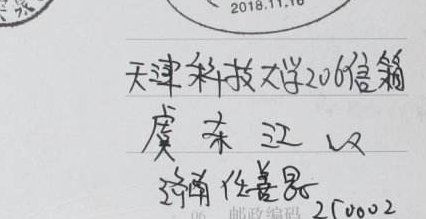 2018.11.16
天津科技大学206信箱
虞东江 收
济南任善岑
250002
邮政编码